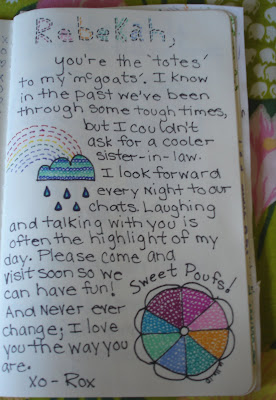 Rebekah,
you're the 'totes'
to my 'mcgoats'. I know
in the past we've been
through some tough times,
but I couldn't
ask for a cooler
sister-in-law.
I look forward
every Night to our
chats. Laughing
and talking with you is
often the highlight of my
day. Please come and
visit soon so we
can have fun!
Sweet Poufs!
And Never ever
change; I love
you the way you
are.
xo-Rox